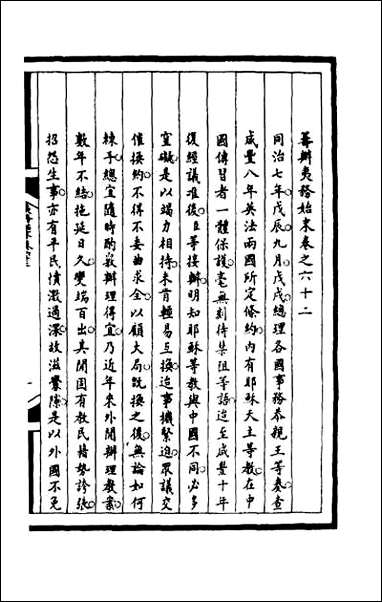 籌辦夷務始末卷之六十二
同治七年戊辰九月戊戌總理各國事務恭親王等奏查
咸豐八年英法兩國所定條約內有耶穌天主等教在中
國傳習者一體保護毫無刻待禁阻等語迨至咸豐十年
復經議准後臣等接辦明知耶穌等教與中國不同必多
窒礙是以竭力相持未肯輕易互換迨事機緊迫眾議交
催換約不得不委曲求全以顧大局既換之後無論如何
棘手總宜隨時酌覈辦理得宜乃近年來外間辦理教案
數年不結拖延日久變端百出其間固有教民藉勢誇張
招怨生事亦有平民憤激過深故滋釁隙是以外國不免